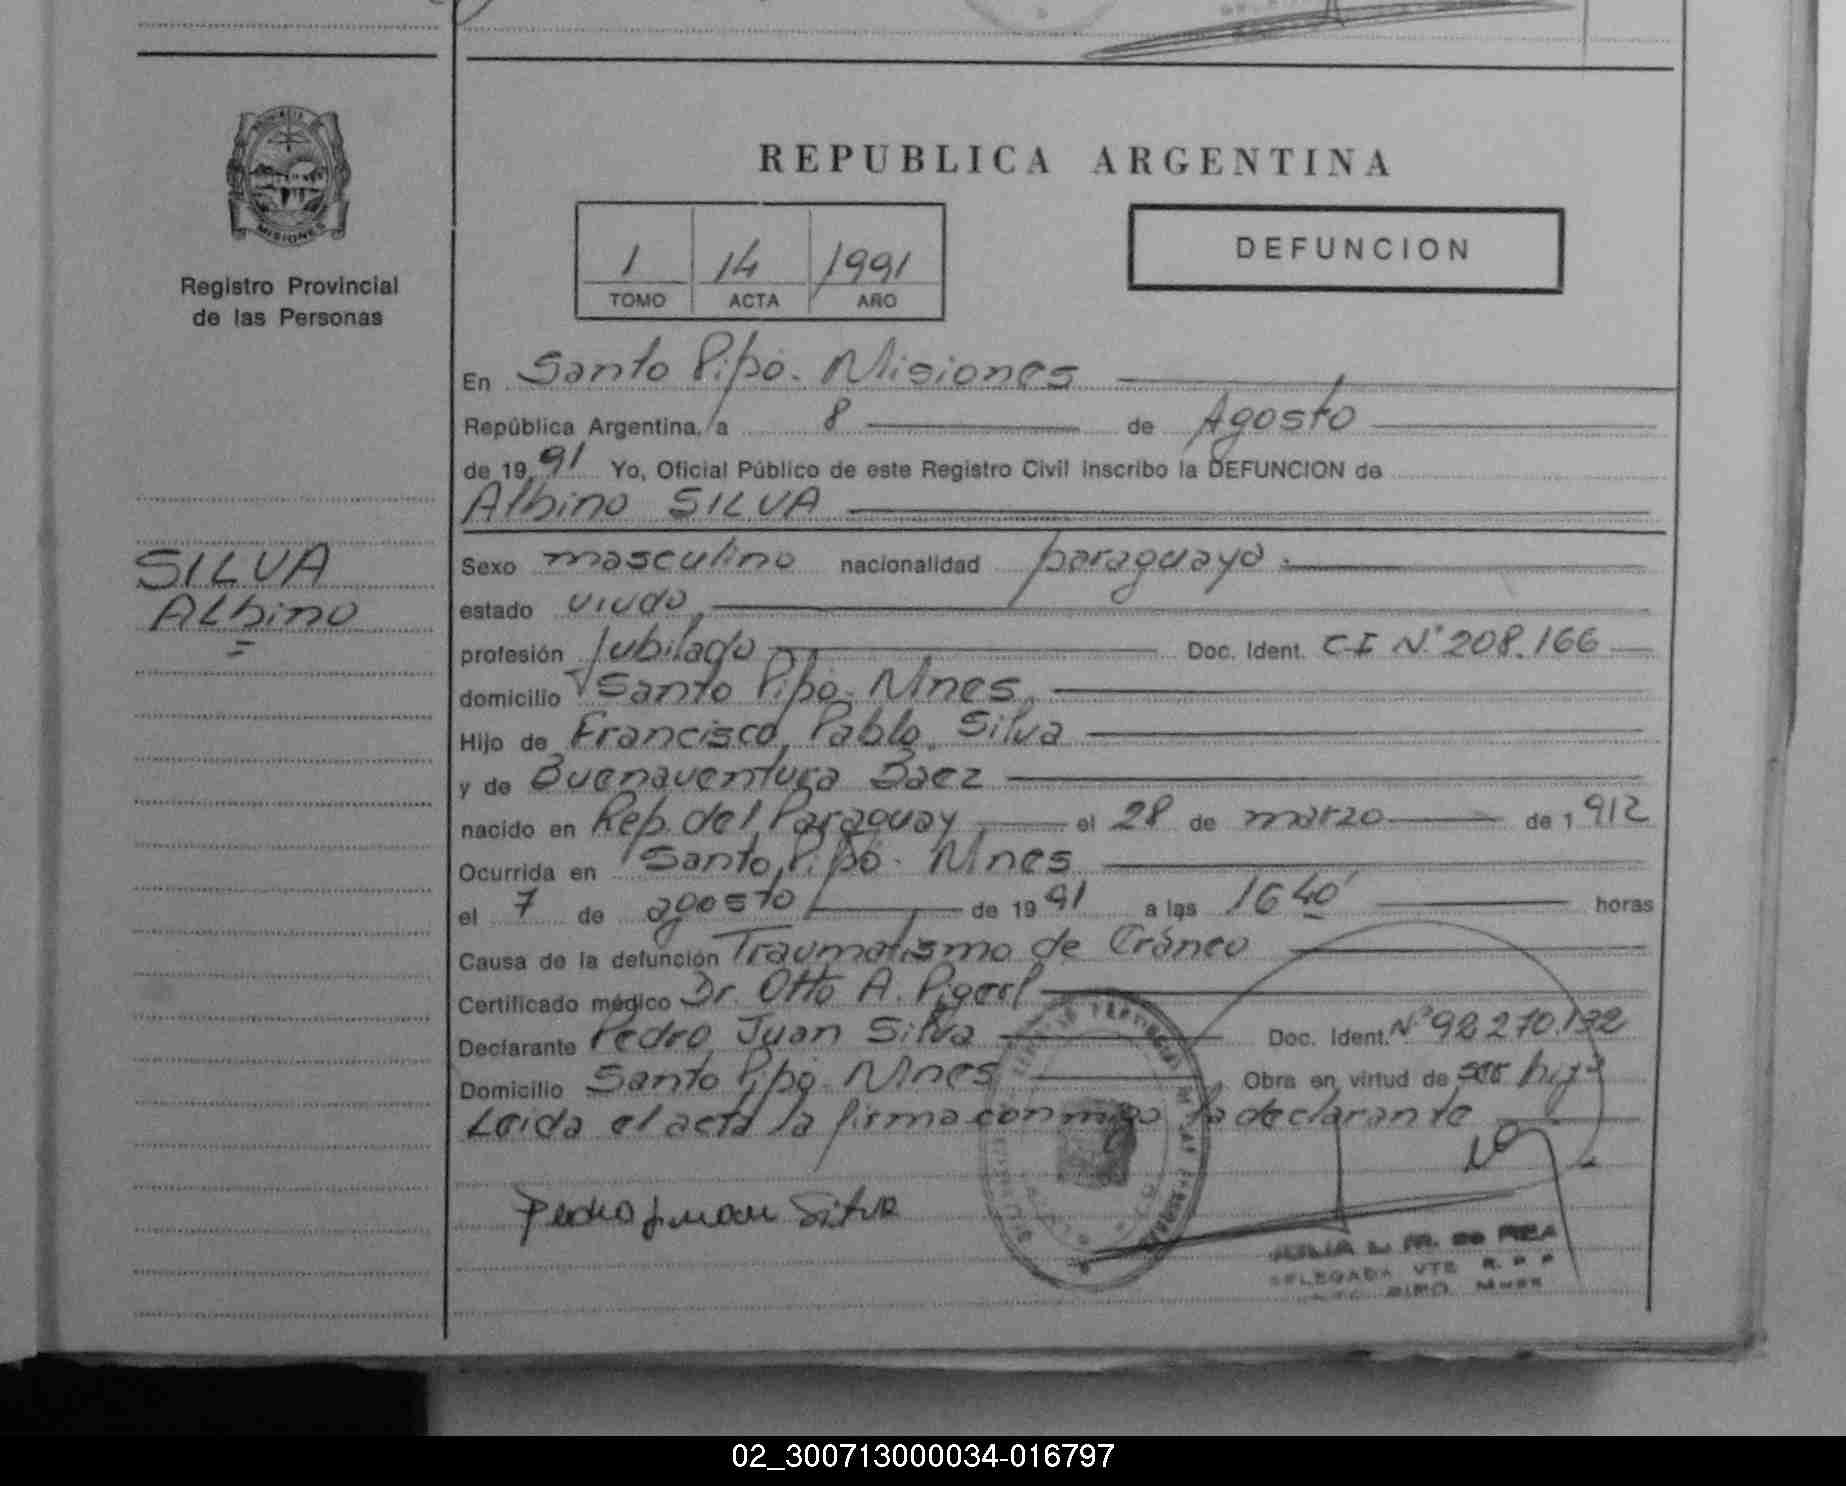 PROVINCIA DE
MISIONES
Registro Provincial
de las Personas
SILVA
Albino
REPUBLICA ARGENTINA
1 14 1991
TOMO ACTA AÑO
DEFUNCION
En Santo Pipó. Misiones
República Argentina, a 8 de Agosto
de 19 91 Yo, Oficial Público de este Registro Civil inscribo la DEFUNCION de
Albino SILVA
Sexo masculino nacionalidad paraguayo.
estado viudo
profesión Jubilado Doc. Ident. C-I N° 208.166
domicilio Santo Pipó. Mnes
Hijo de Francisco Pablo Silva
y de Buenaventura Baez
nacido en Rep. del Paraguay el 28 de marzo de 1 912
Ocurrida en Santo Pipó. Mnes
el 7 de agosto de 19 91 a las 16 40' horas
Causa de la defunción Traumatismo de Cráneo
Certificado médico Dr. Otto A. Pigerl
Declarante Pedro Juan Silva Doc. Ident. N° 92 270.132
Domicilio Santo Pipó. Mnes Obra en virtud de ser hijo
Leida el acta la firma conmigo la declarante
Pedro Juan Silva
JULIA L. M. de REA
DELEGADA VTE R. P. P
STO. PIPO. Mnes
02_300713000034-016797